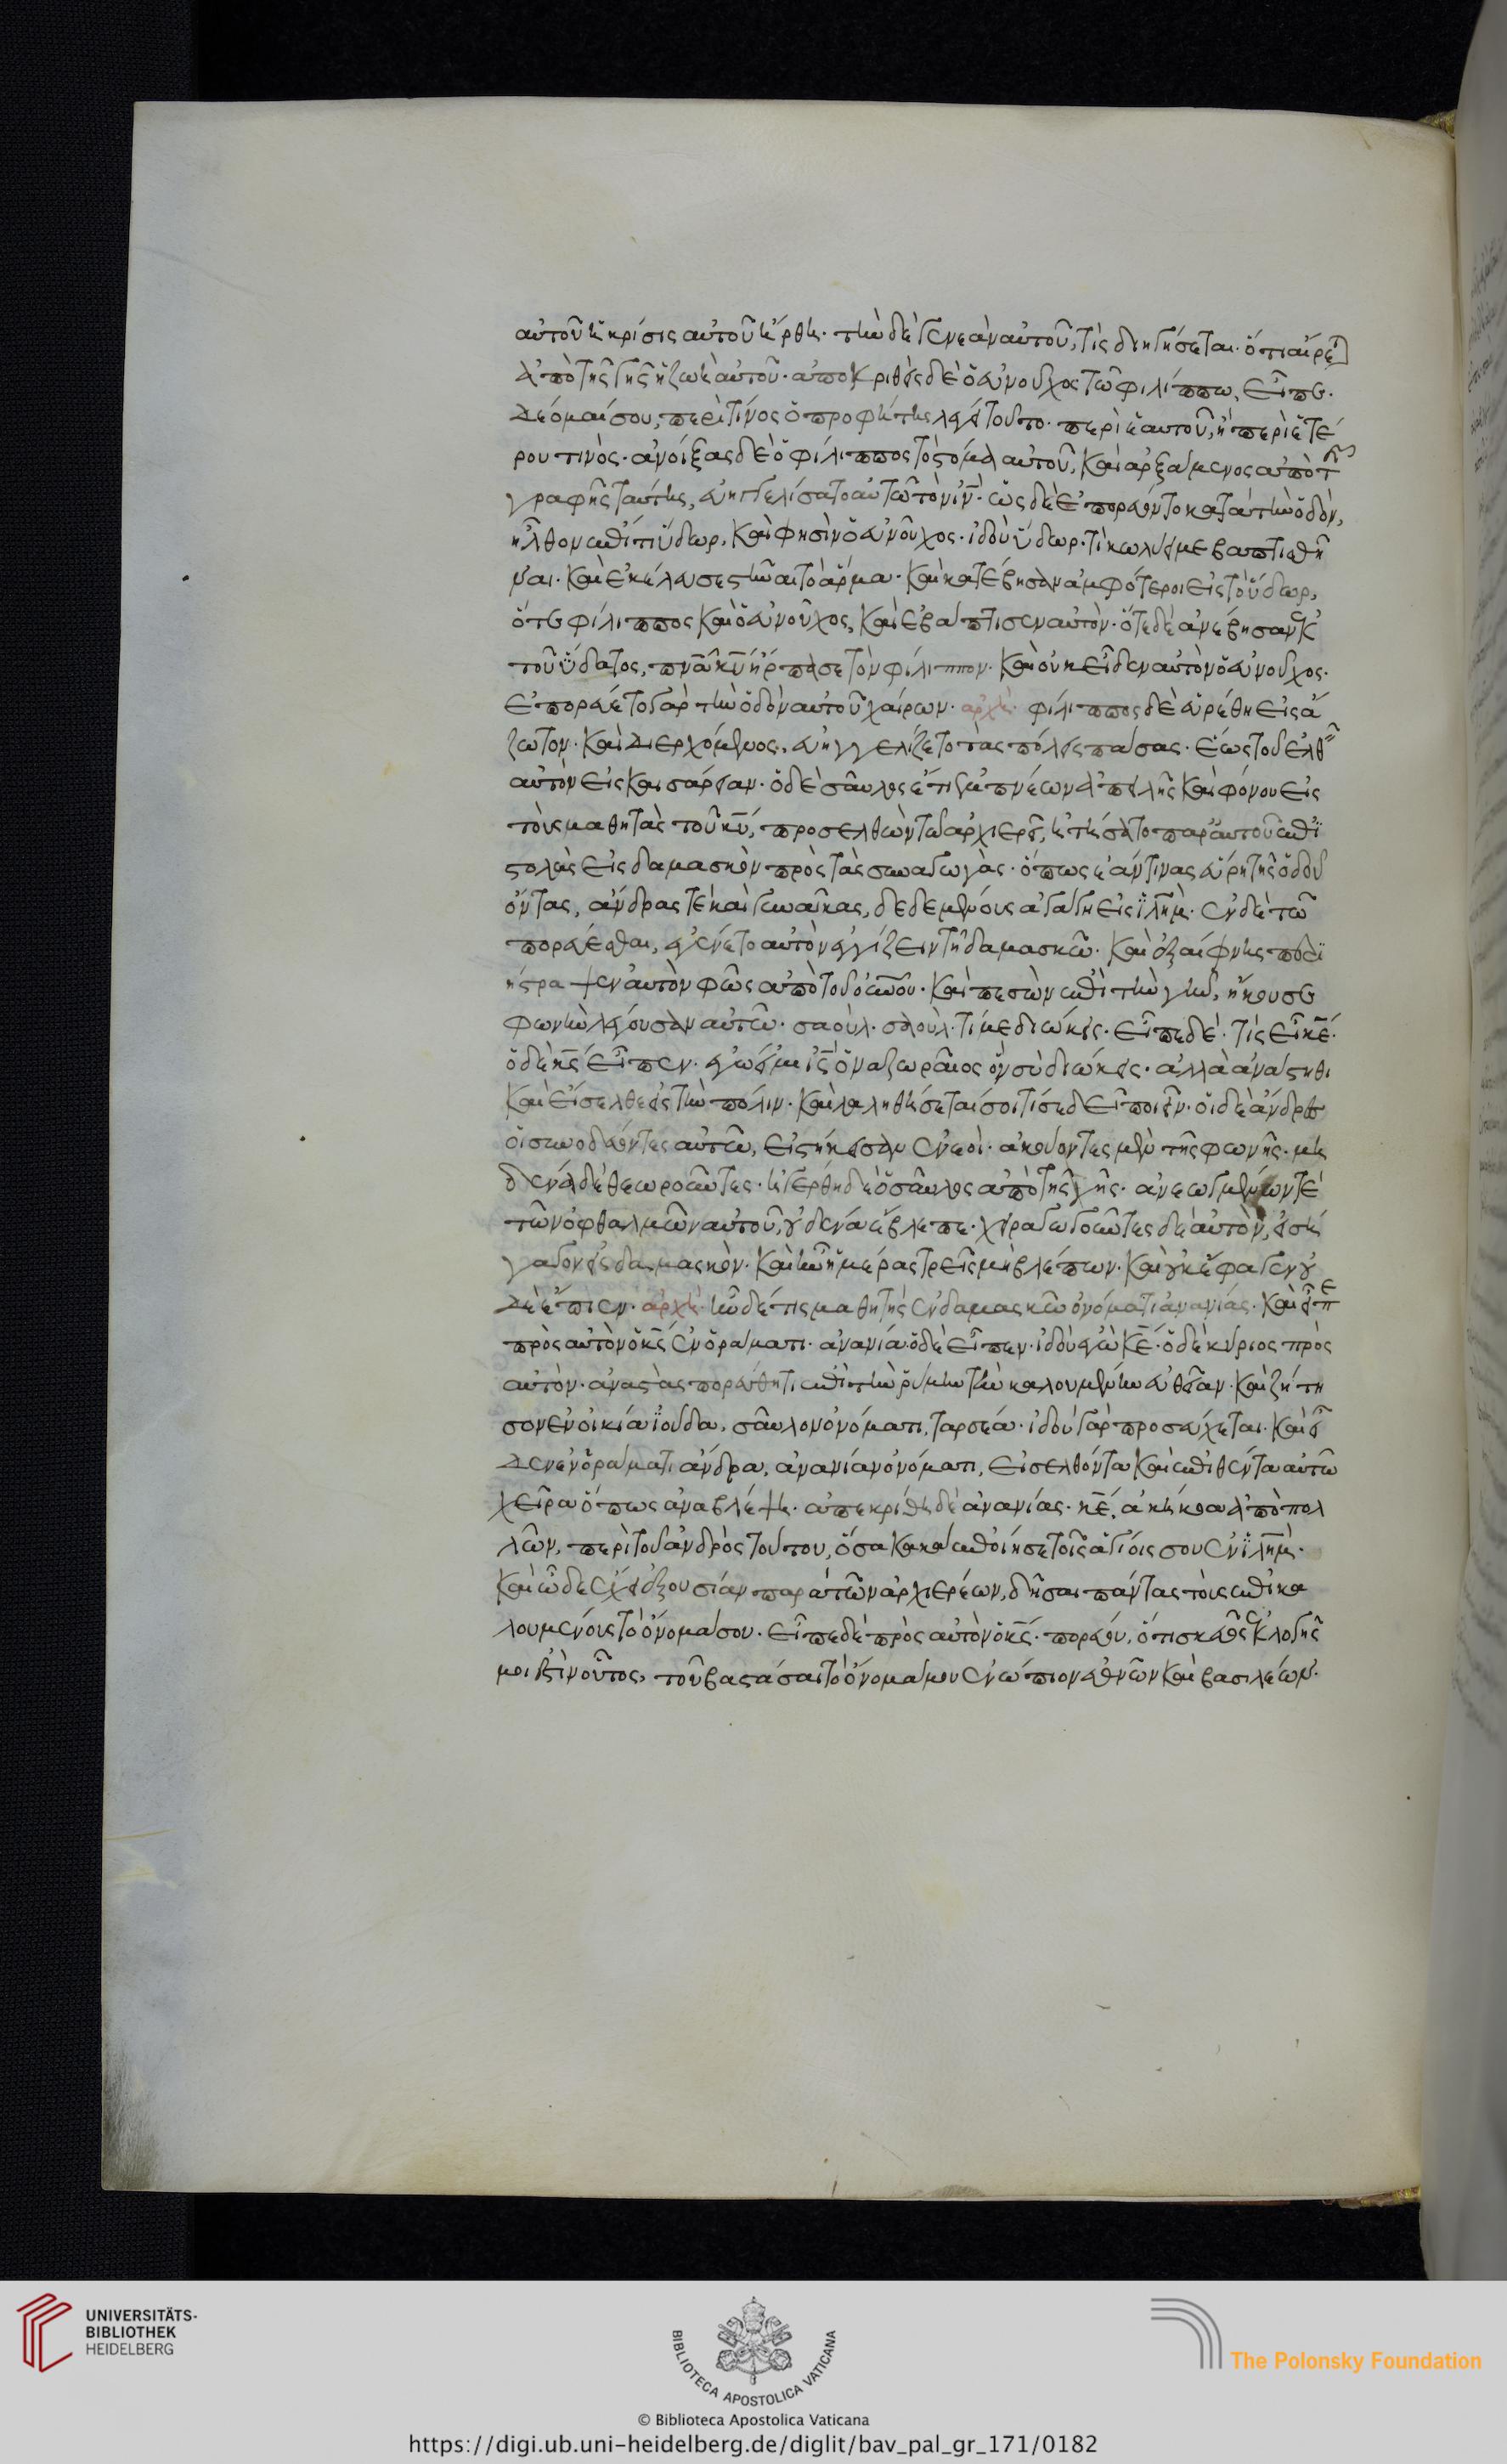 αὐτοῦ ἡ κρίσις αὐτοῦ ἤρθη· τὴν δὲ γενεὰν αὐτοῦ, τίς διηγήσεται· ὅτι αἴρε
ἀπὸ τῆς γῆς ἡ ζωὴ αὐτοῦ· ἀποκριθεὶς δὲ ὁ εὐνοῦχος τῶ φιλίππω, εἶπε·
δέομαί σου, περὶ τίνος ὁ προφήτης λέγει τοῦτο· περὶ ἑαυτοῦ, ἢ περὶ ἑτέ
ρου τινὸς· ἀνοίξας δὲ ὁ φίλιππος τὸ στόμα αὐτοῦ, καὶ ἀρξάμενος ἀπὸ τ
γραφῆς ταύτης, εὐηγγελίσατο αὐτῶ τὸν ιν· ὡς δὲ ἐπορεύοντο κατὰ τὴν ὁδόν,
ἦλθον ἐπί τι ὕδωρ, καὶ φησὶν ὁ εὐνοῦχος· ἰδοὺ ὕδωρ· τί κωλύει με βαπτισθῆ
ναι· καὶ ἐκέλευσε στῆναι τὸ ἅρμα· καὶ κατέβησαν ἀμφότεροι εἰς τὸ ὕδωρ,
ὅ τε φίλιππος καὶ ὁ εὐνοῦχος, καὶ ἐβάπτισεν αὐτὸν· ὅτε δὲ ἀνέβησαν ἐκ
τοῦ ὕδατος, πνα κυ ἥρπασε τὸν φίλιππον· καὶ οὐκ εἶδεν αὐτὸν ὁ εὐνοῦχος·
ἐπορεύετο γὰρ τὴν ὁδὸν αὐτοῦ χαίρων· αρχὴ· φίλιππος δὲ εὑρέθη εἰς ἄ
ζωτον· καὶ διερχόμενος, εὐηγγελίζετο τὰς πόλεις πάσας· ἕως τοῦ ἐλθ
αὐτὸν εἰς καισάρειαν· ὁ δὲ σαῦλος ἔτι ἐμπνέων ἀπειλῆς καὶ φόνου εἰς
τοὺς μαθητὰς τοῦ κυ, προσελθὼν τῶ ἀρχιερεῖ, ἠτήσατο παρ' αὐτοῦ ἐπι
στολὰς εἰς δαμασκὸν πρὸς τὰς συναγωγὰς· ὅπως ἐάν τινας εὕρη τῆς ὁδοῦ
ὄντας, ἄνδρας τὲ καὶ γυναῖκας, δεδεμένους ἀγάγη εἰς ϊλημ· ἐν δὲ τῶ
πορεύεσθαι, ἐγένετο αὐτὸν ἐγγίζειν τῆ δαμασκῶ· καὶ ἐξαίφνης περϊ
ήστραψεν αὐτὸν φῶς ἀπὸ τοῦ οὐνου· καὶ πεσὼν ἐπὶ τὴν γῆν, ἤκουσε
φωνὴν λέγουσαν αὐτῶ· σαοὺλ· σαοὺλ· τί με διώκεις· εἶπε δέ· τίς εἶ κε·
ὁ δὲ κς εἶπεν· ἐγώ εἰμι ις ὁ ναζωραῖος ὃν σὺ διώκεις· ἀλλὰ ἀνάστηθι
καὶ εἴσελθε εἰς τὴν πόλιν· καὶ λαληθήσεταί σοι τί σε δεῖ ποιεῖν· οἱ δὲ ἄνδρες
οἱ συνοδεύοντες αὐτῶ, εἱστήκεισαν ἐνεοὶ· ἀκούοντες μὲν τῆς φωνῆς· μη
δένα δὲ θεωροῦντες· ἠγέρθη δὲ ὁ σαῦλος ἀπὸ τῆς γῆς· ἀνεωγμένων τέ
τῶν ὀφθαλμῶν αὐτοῦ, οὐδένα ἔβλεπε· χειραγωγοῦντες δὲ αὐτὸν, εἰσή
γαγον εἰς δαμασκὸν· καὶ ἦν ἡμέρας τρεῖς μὴ βλέπων· καὶ οὐκ ἔφαγεν οὐ
δὲ ἔπιεν· αρχὴ· ἦν δέ τις μαθητὴς ἐν δαμασκῶ ὀνόματι ἀνανίας· καὶ εἶπε
πρὸς αὐτὸν ὁ κς ἐν ὁράματι· ἀνανία· ὁ δὲ εἶπεν· ἰδοὺ ἐγὼ κε· ὁ δὲ κύριος πρὸς
αὐτὸν· ἀναστὰς πορεύθητι ἐπὶ τὴν ῥύμην τὴν καλουμένην εὐθεῖαν· καὶ ζήτη
σον ἐν οἰκία ϊούδα, σαῦλον ὀνόματι, ταρσέα· ἰδοὺ γὰρ προσεύχεται· καὶ εἶ
δεν ἐν ὁράματι ἄνδρα, ἀνανίαν ὀνόματι, εἰσελθόντα καὶ ἐπιθέντα αὐτῶ
χεῖρα ὅπως ἀναβλέψη· ἀπεκρίθη δὲ ἀνανίας· κε, ἀκήκοα ἀπὸ πολ
λῶν, περὶ τοῦ ἀνδρὸς τούτου, ὅσα κακὰ ἐποίησε τοῖς ἁγίοις σου ἐν ϊλημ·
καὶ ὧδε ἔχει ἐξουσίαν παρὰ τῶν ἀρχιερέων, δῆσαι πάντας τοὺς ἐπικα
λουμένους τὸ ὄνομά σου· εἶπε δὲ πρὸς αὐτὸν ὁ κς· πορεύου, ὅτι σκεῦος ἐκλογῆς
μοι ἐστὶν οὗτος, τοῦ βαστάσαι τὸ ὄνομά μου ἐνώπιον ἐθνῶν καὶ βασιλέων·
UNIVERSITÄTS-
BIBLIOTHEK
HEIDELBERG
BIBLIOTECA APOSTOLICA VATICANA
The Polonsky Foundation
© Biblioteca Apostolica Vaticana
https://digi.ub.uni-heidelberg.de/diglit/bav_pal_gr_171/0182